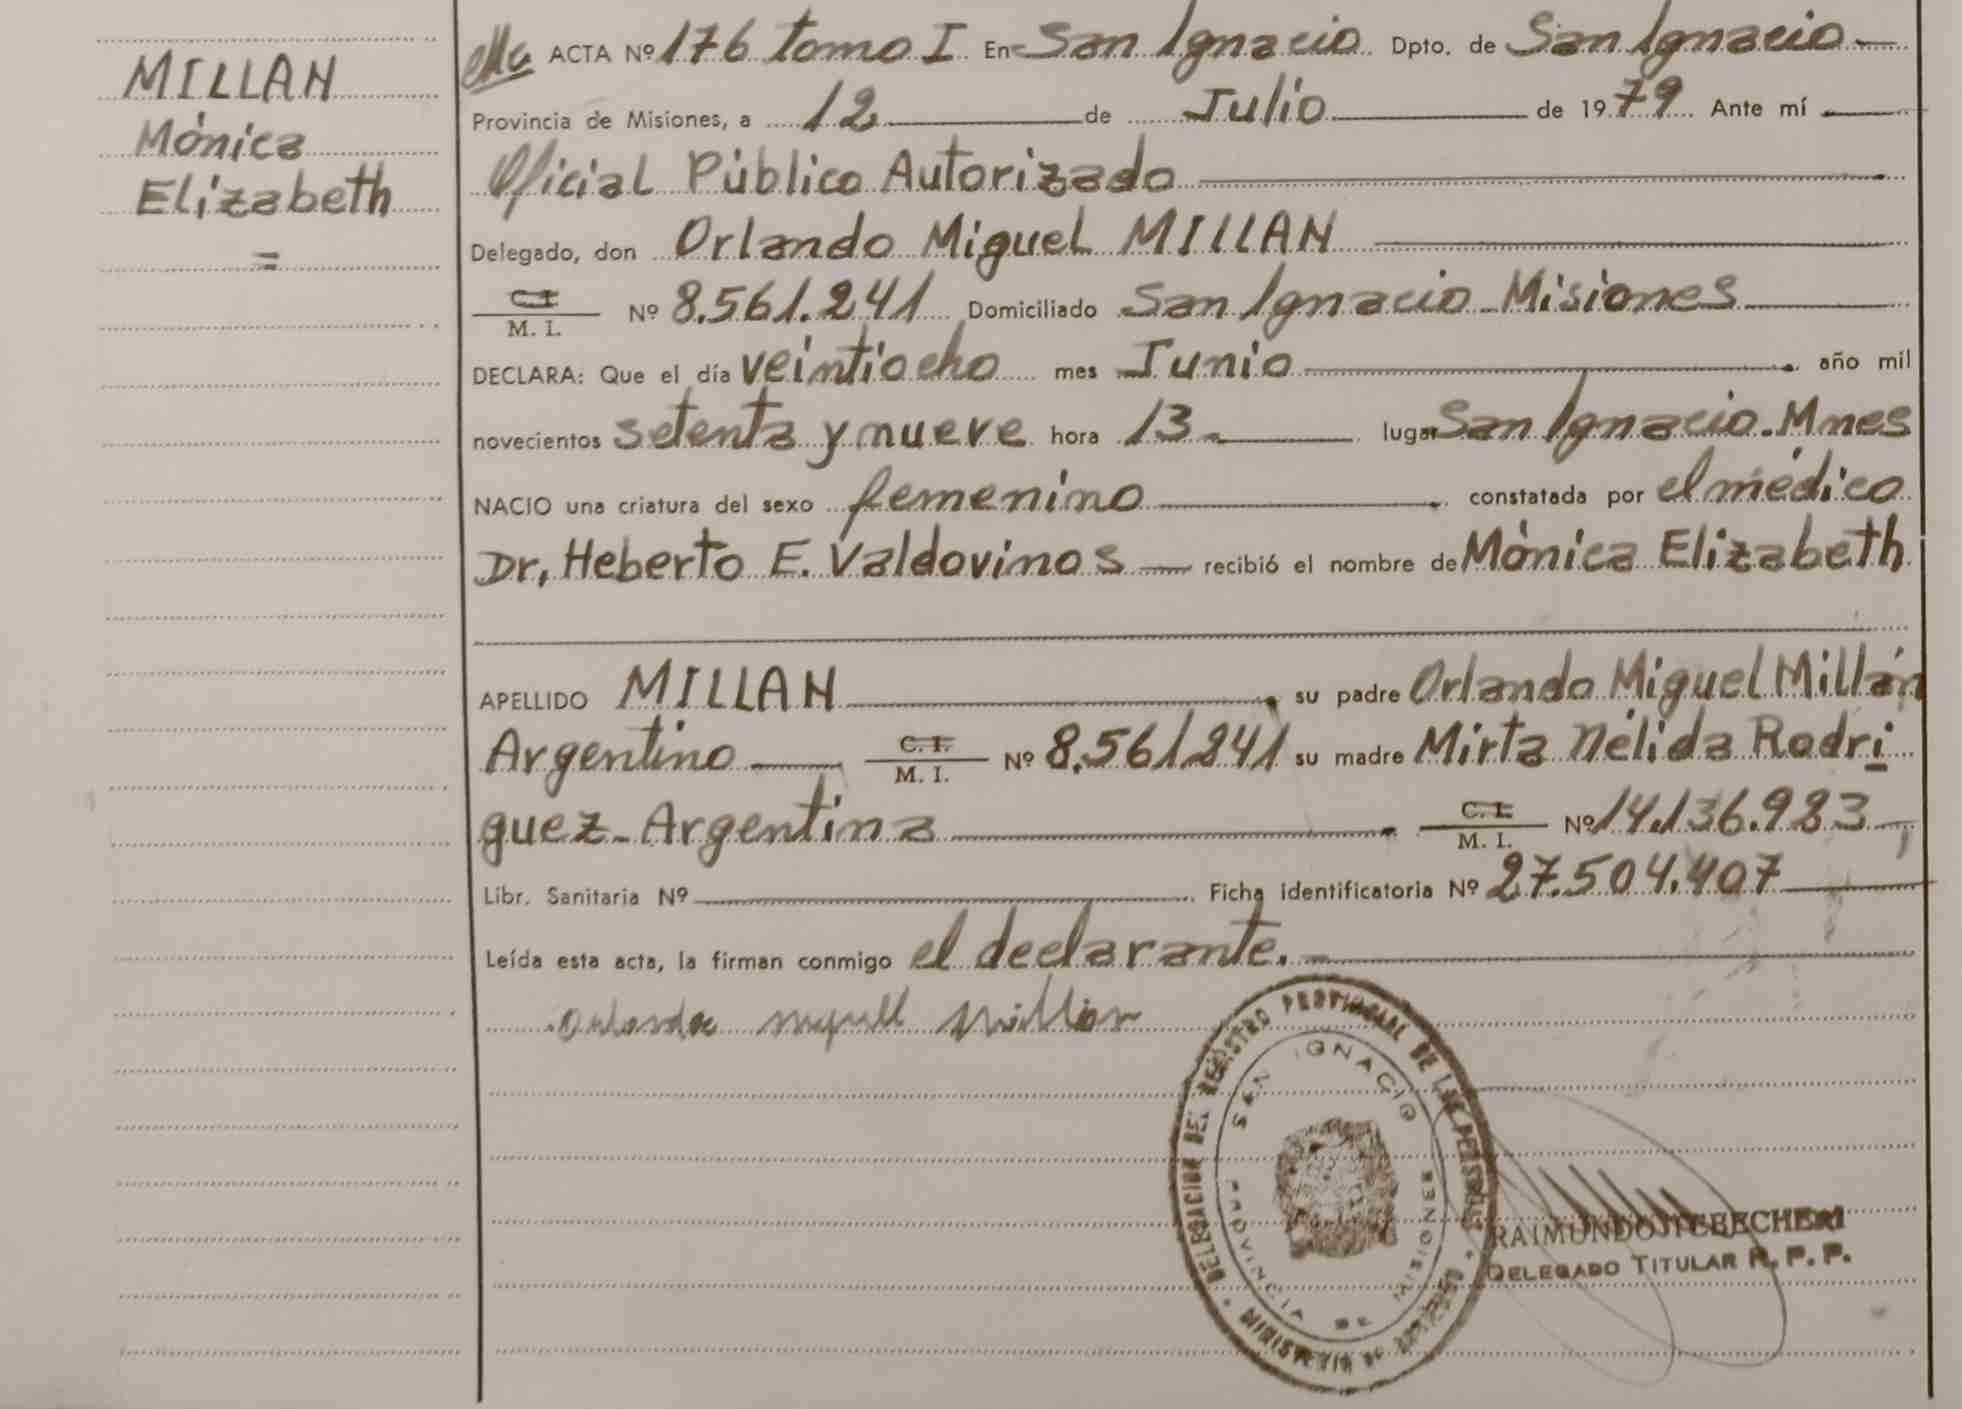 MILLAN
Mónica
Elizabeth
=
ACTA Nº 176 tomo I En San Ignacio Dpto. de San Ignacio
Provincia de Misiones, a 12 de Julio de 1979 Ante mí
Oficial Público Autorizado
Delegado, don Orlando Miguel MILLAN
C.I.
M. I. Nº 8.561.241 Domiciliado San Ignacio - Misiones
DECLARA: Que el día veintiocho mes Junio año mil
novecientos setenta y nueve hora 13 lugar San Ignacio. Mnes
NACIO una criatura del sexo femenino constatada por el médico
Dr, Heberto E. Valdovinos recibió el nombre de Mónica Elizabeth
APELLIDO MILLAN su padre Orlando Miguel Millán
Argentino C. I. M. I. Nº 8.561.241 su madre Mirta Nélida Rodri
guez - Argentina C. I. M. I. Nº 14.136.983
Libr. Sanitaria Nº Ficha identificatoria Nº 27.504.407
Leída esta acta, la firman conmigo el declarante.
Orlando Miguel Millan
DELEGACION DEL REGISTRO PROVINCIAL DE LAS PERSONAS
SAN IGNACIO
PROVINCIA DE MISIONES
RAIMUNDO
DELEGADO TITULAR R. P. P.